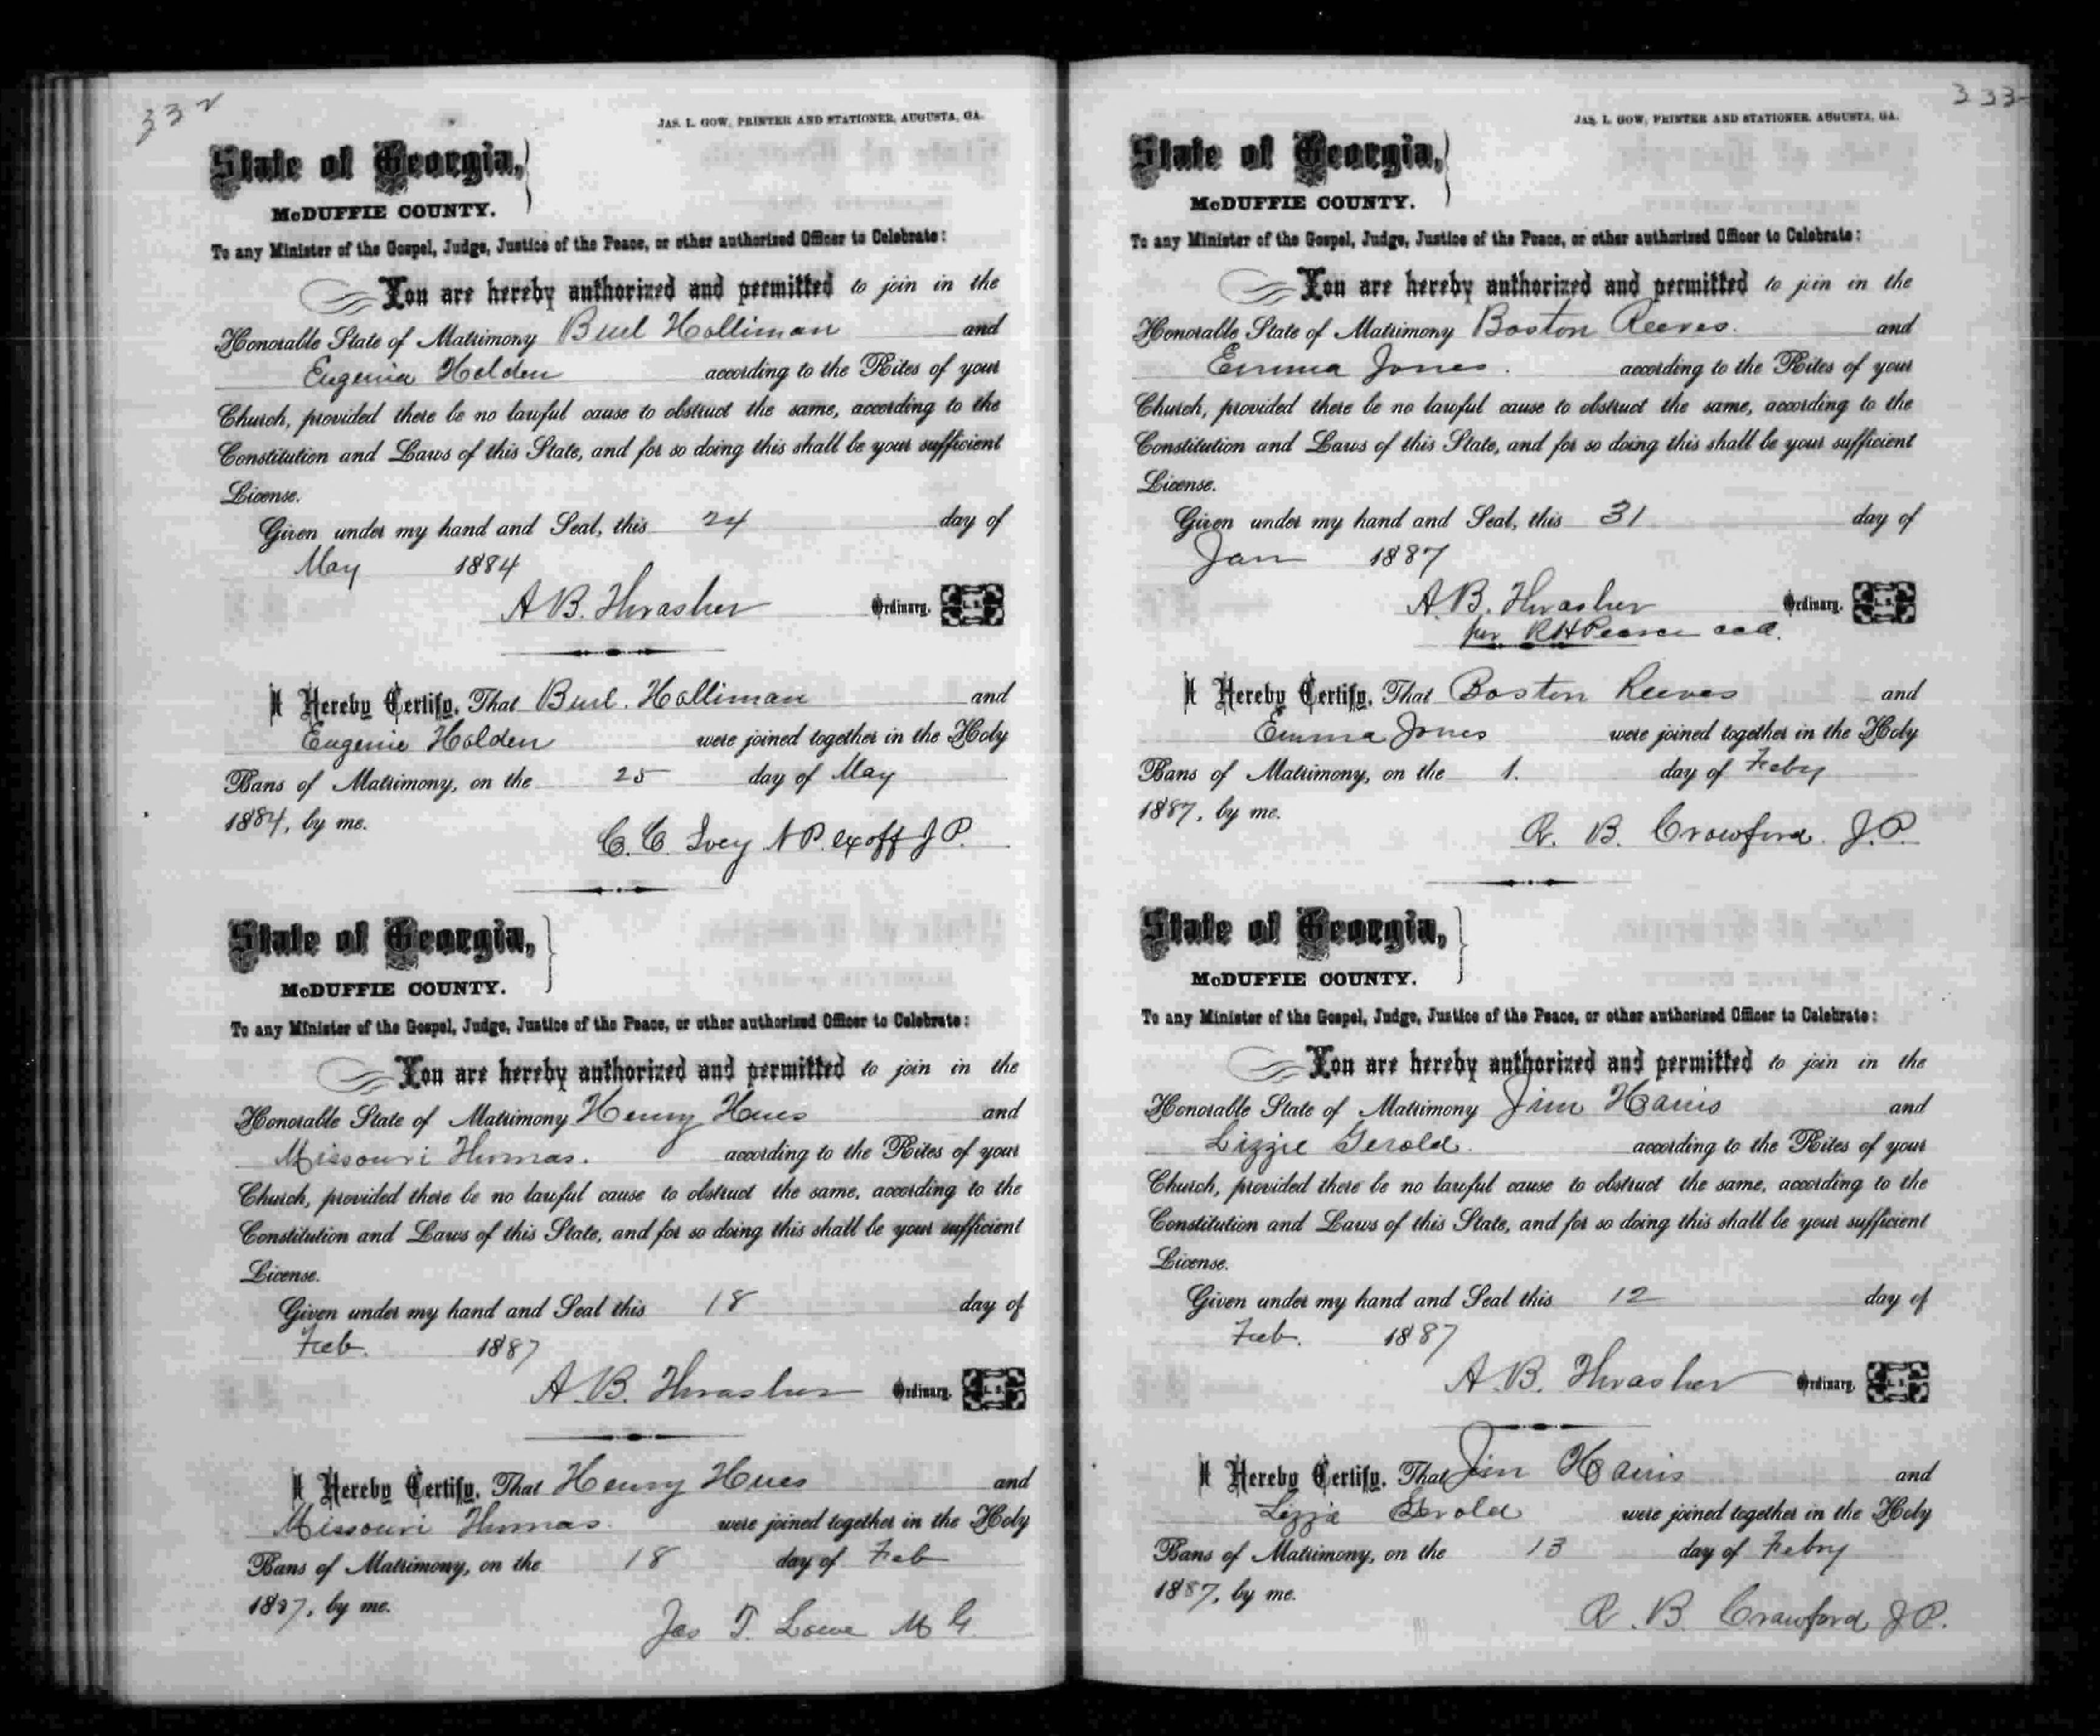 332
JAS. L. GOW, PRINTER AND STATIONER, AUGUSTA, GA.
State of Georgia,
McDUFFIE COUNTY.
To any Minister of the Gospel, Judge, Justice of the Peace, or other authorized Officer to Celebrate:
You are hereby authorized and permitted to join in the
Honorable State of Matrimony Burl Holliman and
Eugenia Holden according to the Rites of your
Church, provided there be no lawful cause to obstruct the same, according to the
Constitution and Laws of this State, and for so doing this shall be your sufficient
License.
Given under my hand and Seal, this 24 day of
May 1884
A B. Thrasher Ordinary. L. S.
I Hereby Certify, That Burl. Holliman and
Eugenie Holden were joined together in the Holy
Bans of Matrimony, on the 25 day of May
1884, by me.
C. C. Ivey N P. ex off J P.
State of Georgia,
McDUFFIE COUNTY.
To any Minister of the Gospel, Judge, Justice of the Peace, or other authorized Officer to Celebrate:
You are hereby authorized and permitted to join in the
Honorable State of Matrimony Henry Hues and
Missouri Thomas. according to the Rites of your
Church, provided there be no lawful cause to obstruct the same, according to the
Constitution and Laws of this State, and for so doing this shall be your sufficient
License.
Given under my hand and Seal this 18 day of
Feb. 1887
A. B. Thrasher Ordinary. L. S.
I Hereby Certify, That Henry Hues and
Missouri Thomas. were joined together in the Holy
Bans of Matrimony, on the 18 day of Feb
1887, by me.
Jas T. Lowe M G.
333
JAS. L. GOW, PRINTER AND STATIONER, AUGUSTA, GA.
State of Georgia,
McDUFFIE COUNTY.
To any Minister of the Gospel, Judge, Justice of the Peace, or other authorized Officer to Celebrate:
You are hereby authorized and permitted to join in the
Honorable State of Matrimony Boston Reeves. and
Emma Jones. according to the Rites of your
Church, provided there be no lawful cause to obstruct the same, according to the
Constitution and Laws of this State, and for so doing this shall be your sufficient
License.
Given under my hand and Seal, this 31 day of
Jan 1887
A. B. Thrasher Ordinary. L. S.
per R H Pearce
I Hereby Certify, That Boston Reeves and
Emma Jones were joined together in the Holy
Bans of Matrimony, on the 1. day of Feby
1887, by me.
R. B. Crawford. J. P.
State of Georgia,
McDUFFIE COUNTY.
To any Minister of the Gospel, Judge, Justice of the Peace, or other authorized Officer to Celebrate:
You are hereby authorized and permitted to join in the
Honorable State of Matrimony Jim Harris and
Lizzie Gerold. according to the Rites of your
Church, provided there be no lawful cause to obstruct the same, according to the
Constitution and Laws of this State, and for so doing this shall be your sufficient
License.
Given under my hand and Seal this 12 day of
Feb. 1887
A. B. Thrasher Ordinary. L. S.
I Hereby Certify, That Jim Harris and
Lizzie Gerold were joined together in the Holy
Bans of Matrimony, on the 13 day of Febry
1887, by me.
R. B. Crawford J P.